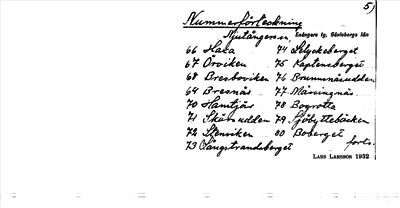 5)
Nummerförteckning
Njutångers sn, Enångers tg, Gävleborgs län
66 Haga 74 Selyckeberget
67 Örviken 75 Kaptensberget
68 Bresboviken 76 Brunnnäsudden
69 Bresnäs 77 Mäsingnäs
70 Hamtjär 78 Bogrotta
71 Skätsudden 79 Sjöbyttebäcken
72 Stenviken 80 Boberget
73 Långstrandsberget forts.
LARS LARSSON 1932